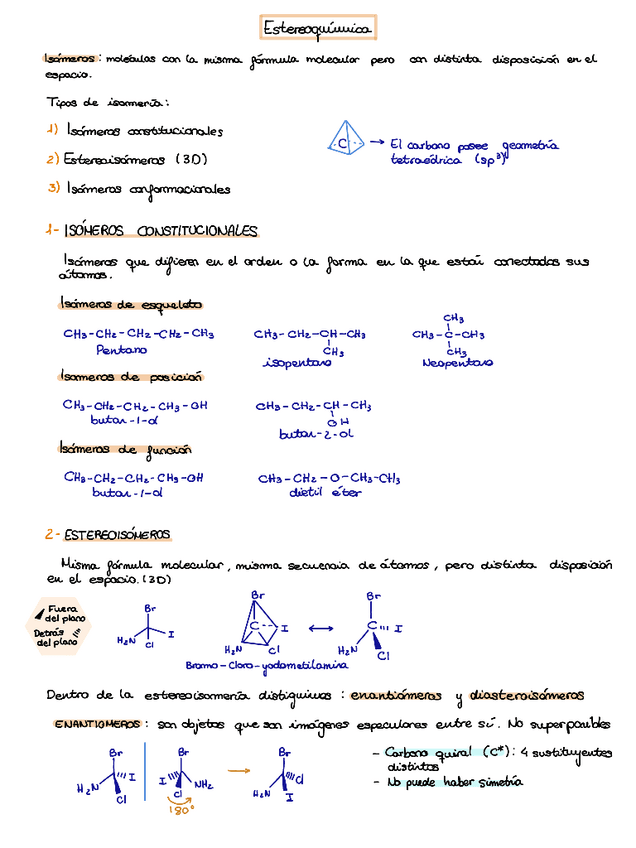 Estereoquímica
Isómeros: moléculas con la misma fórmula molecular pero con distinta disposición en el
espacio.
Tipos de isomería:
1) Isómeros constitucionales
2) Estereoisómeros (3D)
3) Isómeros conformacionales
C → El carbono posee geometría
tetraédrica (sp³)
1- ISÓMEROS CONSTITUCIONALES
Isómeros que difieren en el orden o la forma en la que están conectados sus
átomos.
Isómeros de esqueleto
CH3-CH2-CH2-CH2-CH3
Pentano
CH3-CH2-CH-CH3
CH3
isopentano
CH3
CH3-C-CH3
CH3
Neopentano
Isomeros de posición
CH3-CH2-CH2-CH3-OH
butan-1-ol
CH3-CH2-CH-CH3
OH
butan-2-ol
Isómeros de función
CH3-CH2-CH2-CH3-OH
butan-1-ol
CH3-CH2-O-CH3-CH3
dietil éter
2- ESTEREOISÓMEROS
Misma fórmula molecular, misma secuencia de átomos, pero distinta disposición
en el espacio. (3D)
Fuera
del plano
Detrás
del plano
Br
H2N
I
Cl
Br
C
I
H2N
Cl
↔
Br
C
I
H2N
Cl
Bromo-Cloro-yodometilamina
Dentro de la estereoisomería distiguimos: enantiómeros y diasteroisómeros
ENANTIOMEROS: son objetos que son imágenes especulares entre sí. No superponibles
Br
I
H2N
Cl
Br
I
NH2
Cl
180°
→
Br
Cl
H2N
I
- Carbono quiral (C*): 4 sustituyentes
distintos
- No puede haber simetría